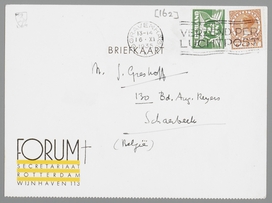 [162]
BRIEFKAART
M. J. Greshoff
130 Bd. Aug. Reyers
Schaerbeek
(België)
FORUM
SECRETARIAAT
ROTTERDAM
WIJNHAVEN 113